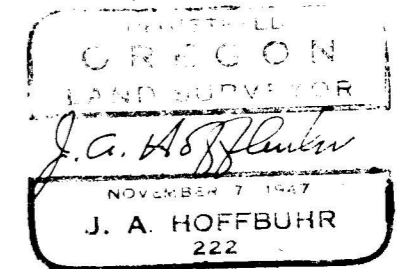 OREGON
LAND SURVEYOR
J. A. Hoffbuhr
NOVEMBER 7 1947
J. A. HOFFBUHR
222